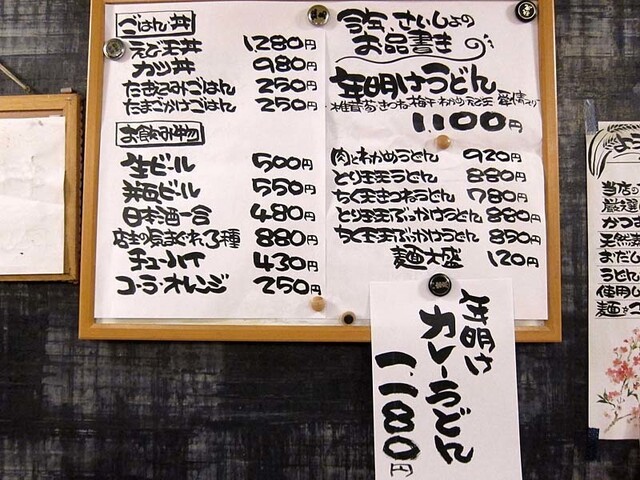 ごはん丼
えび玉丼 1280円
カツ丼 980円
たきこみごはん 250円
たまごかけごはん 250円
お飲み物
生ビール 500円
瓶ビール 550円
日本酒一合 480円
店主の気まぐれ、3種 880円
チューハイ 430円
コーラ・オレンジ 250円
今年、さいしょの
お品書き
年明けうどん
椎茸 きつね 梅干 わかめ 天玉 愛情入り
1.100円
肉とわかめうどん 920円
とり玉天うどん 880円
ちく玉天きつねうどん 780円
とり玉天ぶっかけうどん 880円
ちく玉天ぶっかけうどん 890円
麺大盛 120円
年明け
カレーうどん
1.180円
当店の
厳選
かつお
天然素
おだし
うどん
使用し
麺をこ